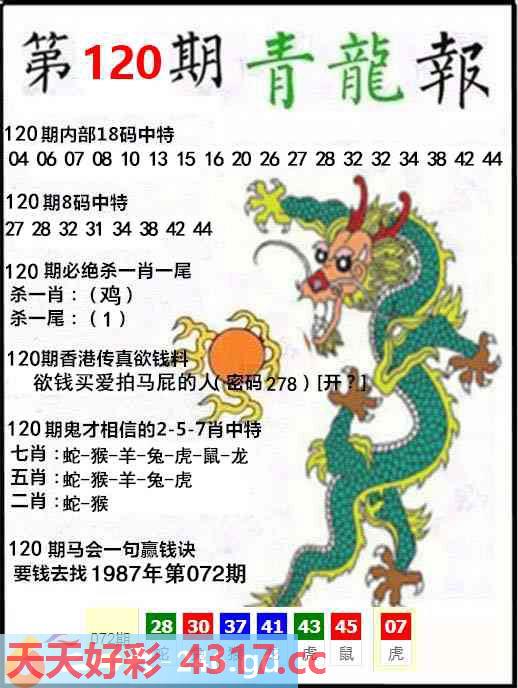 第120期青龍報
120期内部18码中特
04 06 07 08 10 13 15 16 20 26 27 28 32 32 34 38 42 44
120期8码中特
27 28 32 31 34 38 42 44
120期必绝杀一肖一尾
杀一肖：（鸡）
杀一尾：（1）
120期香港传真欲钱料
欲钱买爱拍马屁的人（密码278）[开？]
120期鬼才相信的2-5-7肖中特
七肖：蛇-猴-羊-兔-虎-鼠-龙
五肖：蛇-猴-羊-兔-虎
二肖：蛇-猴
120期马会一句赢钱诀
要钱去找1987年第072期
072期 28 30 37 41 43 45 07
蛇 虎 鼠 虎
天天好彩 4317.cc